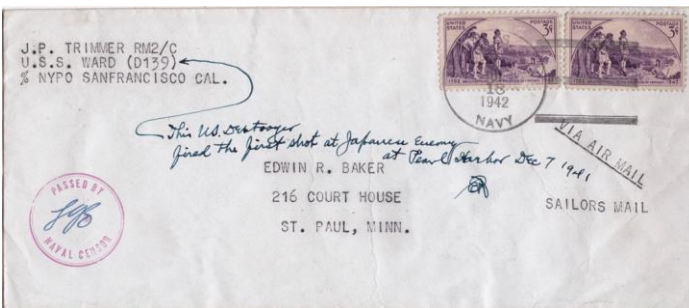 J.P. TRIMMER RM2/C
U.S.S. WARD (D139)
% NYPO SANFRANCISCO CAL.
UNITED STATES POSTAGE 3¢
1792
UNITED STATES POSTAGE 3¢
1792
18
1942
NAVY
This U.S. Destroyer
fired the first shot at Japanese Enemy
at Pearl Harbor Dec 7 1941
VIA AIR MAIL
EDWIN R. BAKER
216 COURT HOUSE
ST. PAUL, MINN.
SAILORS MAIL
PASSED BY
NAVAL CENSOR